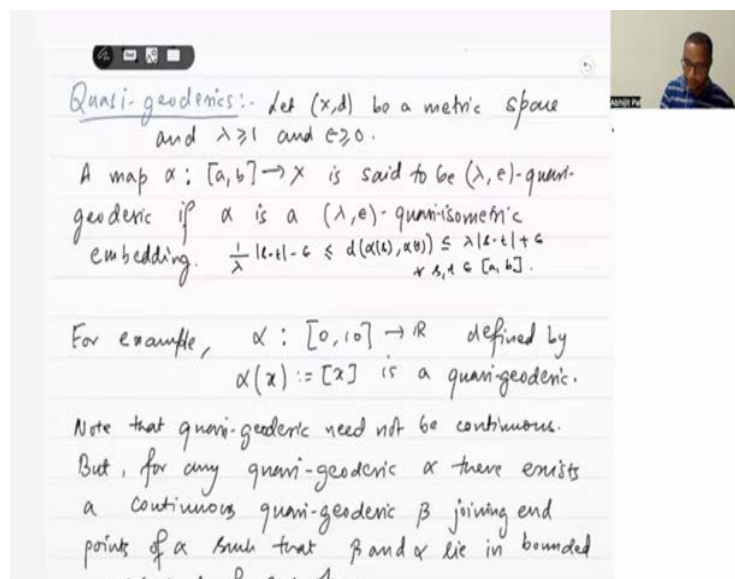 Quasi-geodesics:- Let (X,d) be a metric space
and λ≥1 and ϵ≥0.
A map α: [a,b]→X is said to be (λ,ϵ)-quasi-
geodesic if α is a (λ,ϵ)-quasi-isometric
embedding. 1/λ |s-t|-ϵ ≤ d(α(s),α(t)) ≤ λ|s-t|+ϵ
∀ s,t ∈ [a,b].
For example, α : [0,10] → ℝ defined by
α(x) := [x] is a quasi-geodesic.
Note that quasi-geodesic need not be continuous.
But, for any quasi-geodesic α there exists
a continuous quasi-geodesic β joining end
points of α such that β and α lie in bounded
Abhijit Pal